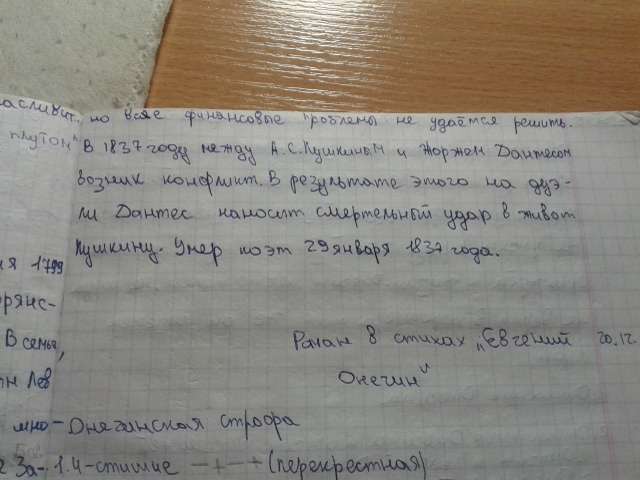 но всие финансовые проблемы не удаётся решить.
В 1837 году между А.С. Пушкиным и Жоржем Дантесом
возник конфликт. В результате этого на дуэ-
ли Дантес наносит смертельный удар в живот
Пушкину. Умер поэт 29 января 1837 года.
Роман в стихах „Евгений 20.12
Онегин"
1799
В семь,
Онегинская строфа
1. 4-стишие - + - + (перекрестная)